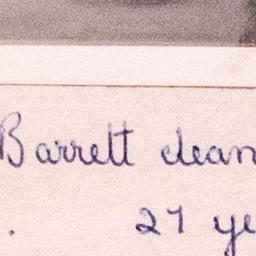 Barrett clean
. 27 ye